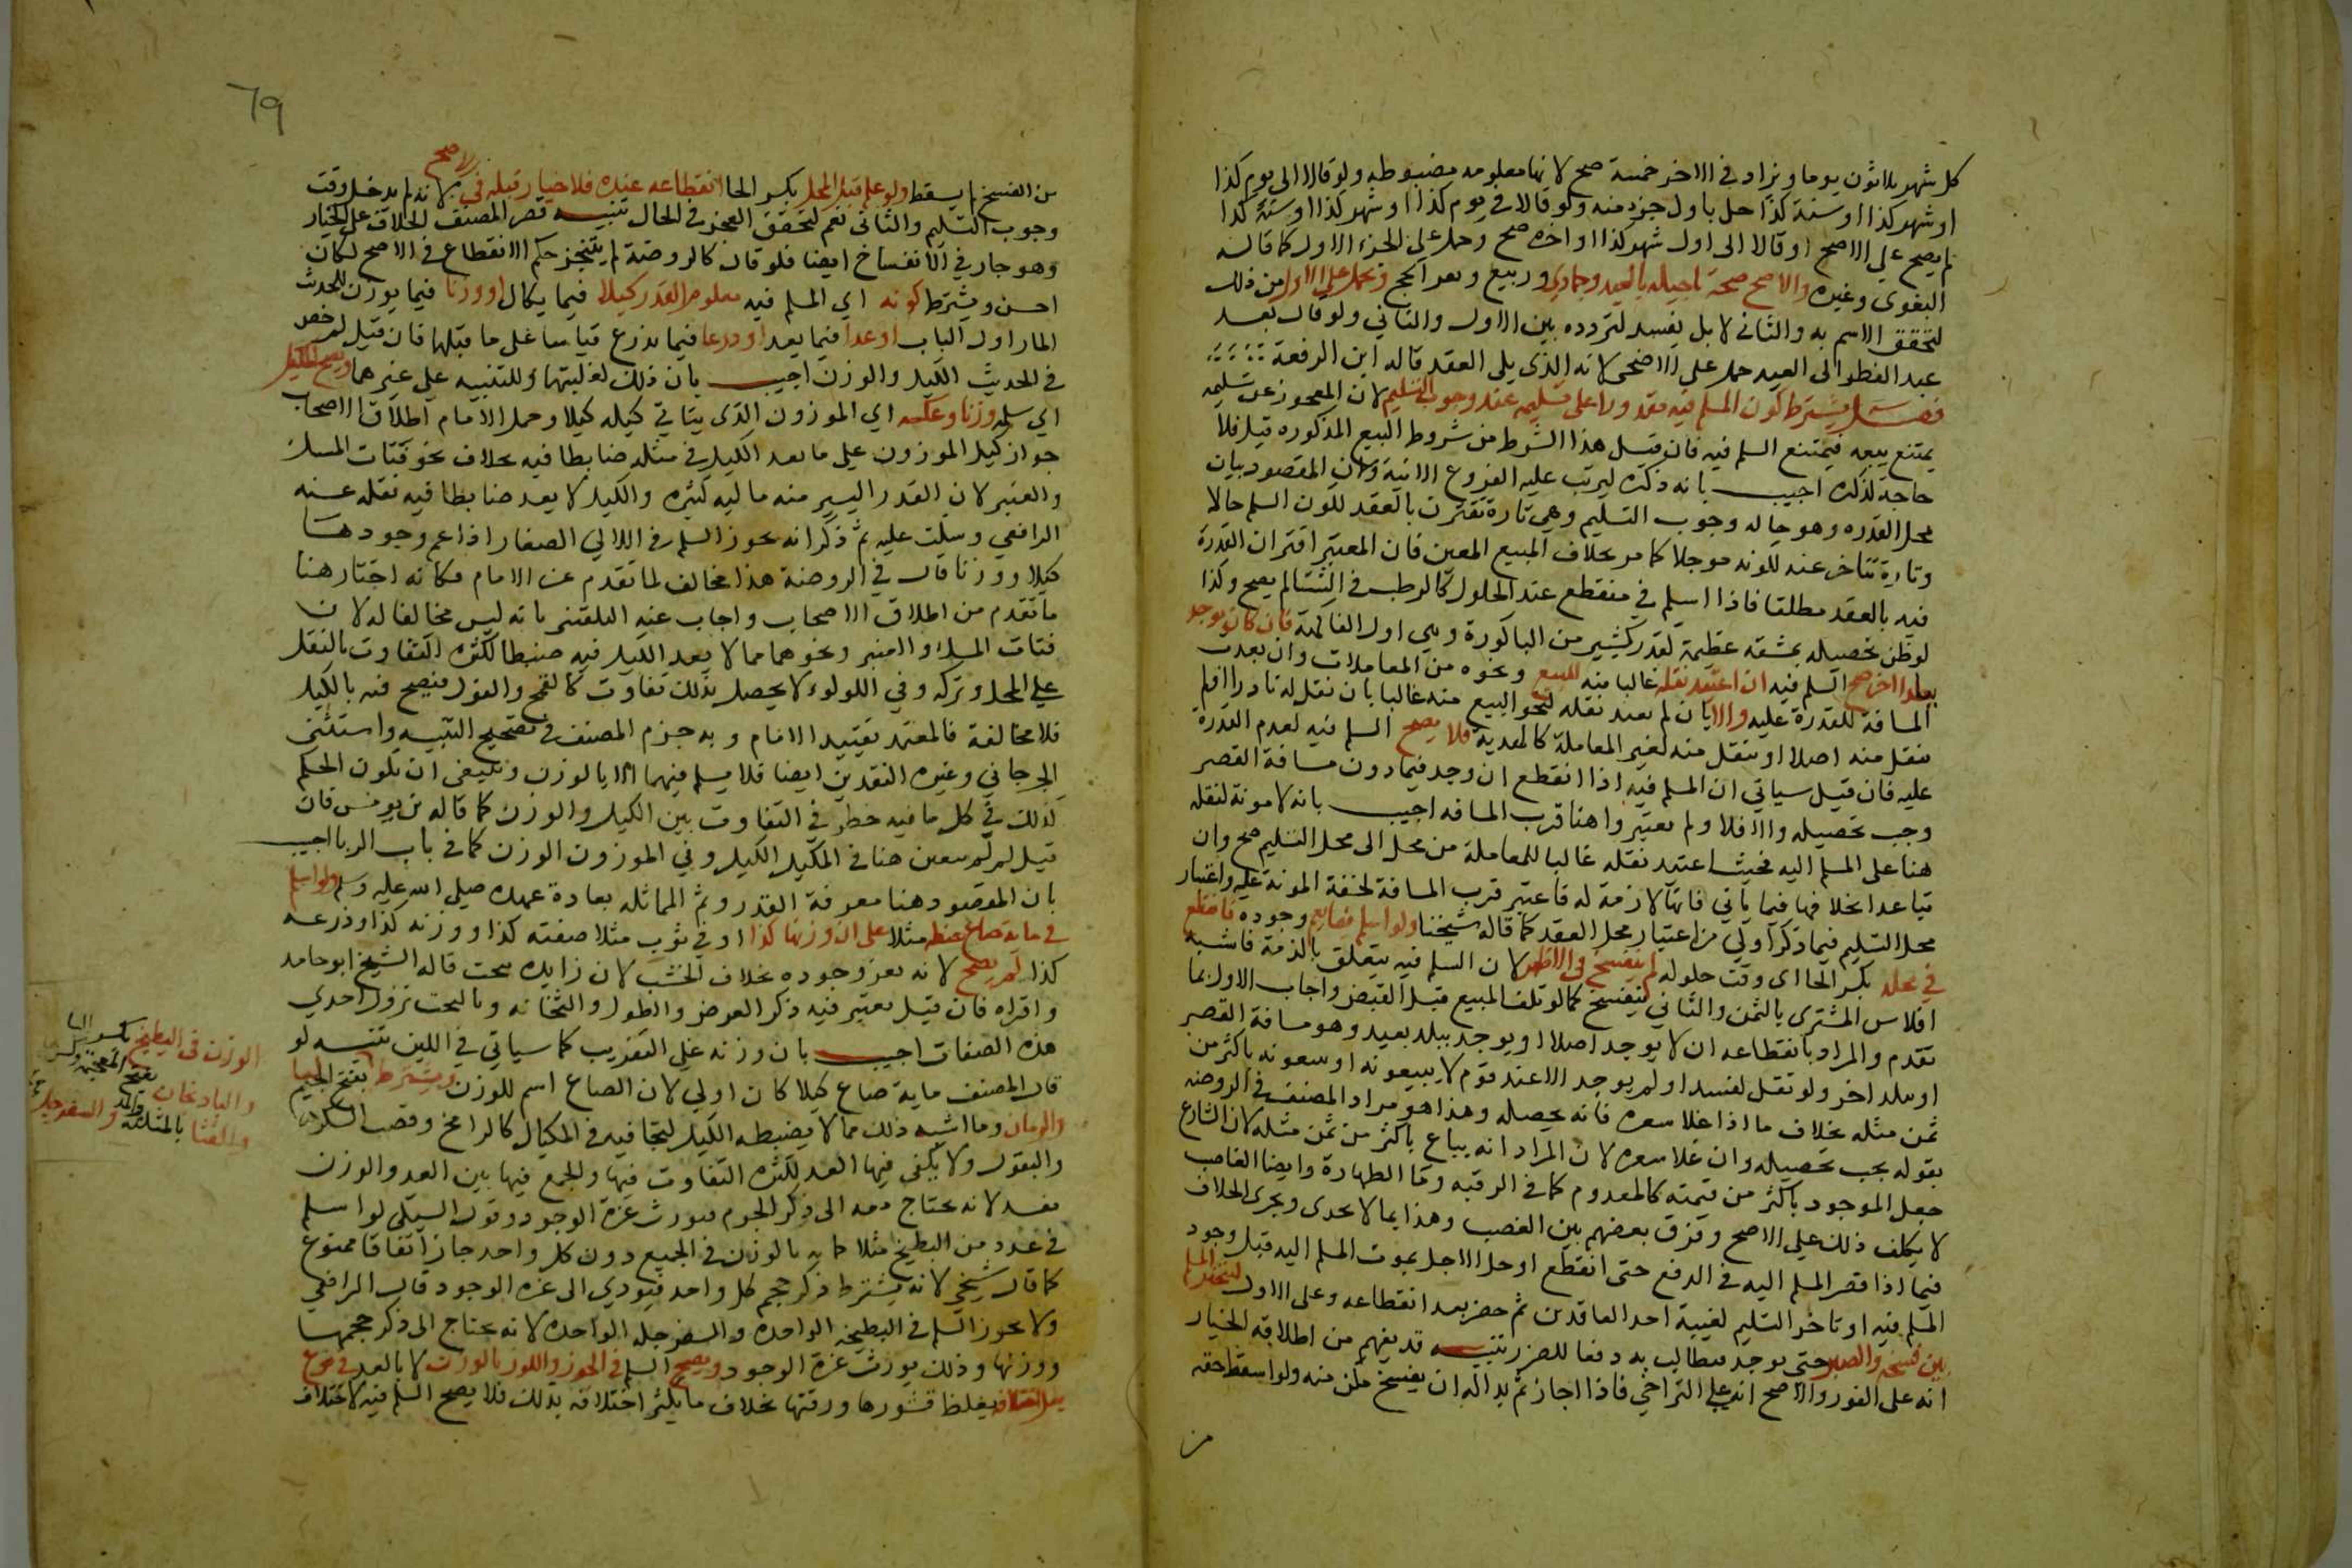 كل شهر ثلاثون يوما ويزاد في الاخر خمسة صح لانها معلومه مضبوطه ولو قالا الى يوم كذا
او شهر كذا او سنة كذا حل باول جزء منه ولو قالا في يوم كذا او شهر كذا او سنة كذا
لم يصح على الاصح او قالا الى اول شهر كذا او اخره صح وحمل على الجزء الاول كما قاله
البغوى وغيره والاصح صحة تاجيله بالعيد وجمادي وربيع ونفر الحج ويحمل على الاول من ذلك
لتحقق الاسم به والثاني لا بل يفسد لتردده بين الاول والثاني ولو قال بعد
عيد الفطر الى العيد حمل على الاضحى لانه الذي يلى العقد قاله ابن الرفعة
فصل يشترط كون المسلم فيه مقدورا على تسليمه عند وجوب التسليم لان المعجوز عن تسليمه
يمتنع بيعه فيمتنع السلم فيه فان قيل هذا الشرط من شروط البيع المذكوره قبل فلا
حاجة لذكره اجيب بانه ذكره ليرتب عليه الفروع الاتية وان المقصود بيان
محل القدره وهو حاله وجوب التسليم وهي تارة تقترن بالعقد لكون السلم حالا
وتارة تتاخر عنه لكونه موجلا كما مر بخلاف المبيع المعين فان المعتبر اقتران القدرة
فيه بالعقد مطلقا فاذا اسلم في منقطع عند الحلول كالرطب في الشتا لم يصح وكذا
لو ظن تحصيله بمشقة عظيمة لقدر كثير من الباكورة وهي اول الفاكهة فان كان يوجد
ببلد اخر صح السلم فيه ان اعتيد نقله غالبا منه للبيع ونحوه من المعاملات وان بعدت
المسافة للقدرة عليه والا بان لم يعتد نقله لنحو البيع منه غالبا بان نقل له نادرا او لم
ينقل منه اصلا او ينقل منه لغير المعاملة كالهدية فلا يصح السلم فيه لعدم القدرة
عليه فان قيل سياتي ان المسلم فيه اذا انقطع ان وجد فيما دون مسافة القصر
وجب تحصيله والا فلا ولم يعتبروا هنا قرب المسافه اجيب بانه لا مونة لنقله
هنا على المسلم اليه فحيث اعتيد نقله غالبا للمعاملة من محل الى محل التسليم صح وان
تباعدا بخلافها فيما ياتي فانها لازمة له فاعتبر قرب المسافة لخفة المونة عليه واعتبار
محل التسليم فيما ذكر اولى من اعتبار محل العقد كما قاله شيخنا ولو اسلم فيما يعم وجوده فانقطع
في محله بكسر الحا اى وقت حلوله لم ينفسخ في الاظهر لان السلم فيه يتعلق بالذمة فاشبه
افلاس المشترى بالثمن والثاني ينفسخ كما لو تلف المبيع قبل القبض واجاب الاول بما
تقدم والمراد بانقطاعه ان لا يوجد اصلا او يوجد ببلد بعيد وهو مسافة القصر
او ببلد اخر ولو نقل لفسد او لم يوجد الا عند قوم لا يبيعونه او يبيعونه باكثر من
ثمن مثله بخلاف ما اذا غلا سعره فانه يحصله وهذا هو مراد المصنف في الروضه
بقوله يجب تحصيله وان غلا سعره لا ان المراد انه يباع باكثر من ثمن مثله لان الشارع
جعل الموجود باكثر من قيمته كالمعدوم كما في الرقبه وما الطهارة وايضا الغاصب
لا يكلف ذلك على الاصح وفرق بعضهم بين الغصب وهذا بما لا يجدى ويجرى الخلاف
فيما اذا قصر المسلم اليه في الدفع حتى انقطع او حل الاجل بموت المسلم اليه قبل وجود
المسلم فيه او تاخر التسليم لغيبة احد العاقدين ثم حضر بعد انقطاعه وعلى الاول يتخير المسلم
بين فسخه والصبر حتى يوجد فيطالب به دفعا للضرر تنبيه قد يفهم من اطلاقه الخيار
انه على الفور والاصح انه على التراخي فاذا اجاز ثم بدا له ان يفسخ مكن منه ولو اسقط حقه
من
69
من الفسخ لم يسقط ولو علم قبل المحل بكسر الحا انقطاعه عنده فلا خيار قبله في الاصح لانه لم يدخل وقت
وجوب التسليم والثاني نعم لتحقق العجز في الحال تنبيه قصر المصنف الخلاف على الخيار
وهو جار في الانفساخ ايضا فلو قال كالروضة لم يتنجز حكم الانقطاع في الاصح لكان
احسن ويشترط كونه اي المسلم فيه معلوم القدر كيلا فيما يكال او وزنا فيما يوزن للحديث
المار اول الباب او عدا فيما يعد او ذرعا فيما يذرع قياسا على ما قبلها فان قيل لم خص
في الحديث الكيل والوزن اجيب بان ذلك لغلبتهما وللتنبيه على غيرهما ويصح المكيل
اي سلمه وزنا وعكسه اي الموزون الذي يتاتى كيله كيلا وحمل الامام اطلاق الاصحاب
جواز كيل الموزون على ما يعد الكيل في مثله ضابطا فيه بخلاف نحو فتات المسك
والعنبر لان القدر اليسير منه ماليه كثيره والكيل لا يعد ضابطا فيه نقله عنه
الرافعي وسكت عليه ثم ذكر انه يجوز السلم في اللالي الصغار اذا عم وجودها
كيلا ووزنا قال في الروضة هذا مخالف لما تقدم عن الامام فكانه اختار هنا
ما تقدم من اطلاق الاصحاب واجاب عنه البلقيني بانه ليس مخالفا له لان
فتات المسك والعنبر ونحوهما مما لا يعد الكيل فيه ضبطا لكثرة التفاوت بالثقل
على المحل وتركه وفي اللولو لا يحصل بذلك تفاوت كالقمح والفول فيصح فيه بالكيل
فلا مخالفة فالمعتمد تقييد الامام وبه جزم المصنف في تصحيح التنبيه واستثنى
الجرجاني وغيره النقدين ايضا فلا يسلم فيهما الا بالوزن وينبغي ان يكون الحكم
كذلك في كل ما فيه خطر في التفاوت بين الكيل والوزن كما قاله بن يونس فان
قيل لم لم يتعين هنا في المكيل الكيل وفي الموزون الوزن كما في باب الربا اجيب
بان المقصود هنا معرفة القدر وثم المماثله بعادة عهده صلى الله عليه وسلم ولو اسلم
في مائة صاع حنطه مثلا على ان وزنها كذا او في ثوب مثلا صفته كذا ووزنه كذا وذرعه
كذا لم يصح لانه يعز وجوده بخلاف الخشب لان زايده ينحت قاله الشيخ ابو حامد
واقراه فان قيل يعتبر فيه ذكر العرض والطول والثخانه وبالنحت تزول احدي
هذه الصفات اجيب بان وزنه على التقريب كما سياتي في اللبن تنبيه لو
قال المصنف ماية صاع كيلا كان اولي لان الصاع اسم للوزن ويشترط
الوزن في البطيخ بكسر البا
والباذنجان بفتح المعجمة وكسرها
والقثا بالمثلثة والمد والسفرجل بفتح الجيم
والرمان وما اشبه ذلك مما لا يضبطه الكيل لتجافيه في المكيال كالرانج وقصب السكر
والبقول ولا يكفى فيها العد لكثرة التفاوت فيها والجمع فيها بين العد والوزن
مفسد لانه يحتاج معه الى ذكر الجرم فيورث عزة الوجود وقول السبكي لو اسلم
في عدد من البطيخ مثلا كمايه بالوزن في الجميع دون كل واحد جاز اتفاقا ممنوع
كما قال شيخي لانه يشترط ذكر حجم كل واحد فيودي الى عزه الوجود قال الرافعي
ولا يجوز السلم في البطيخه الواحده والسفرجله الواحده لانه يحتاج الى ذكر حجمها
ووزنها وذلك يورث عزة الوجود ويصح السلم في الجوز واللوز بالوزن لا بالعد في نوع
يقل اختلافه بغلظ قشورها ورقتها بخلاف ما يكثر اختلافه بذلك فلا يصح السلم فيه لاختلاف